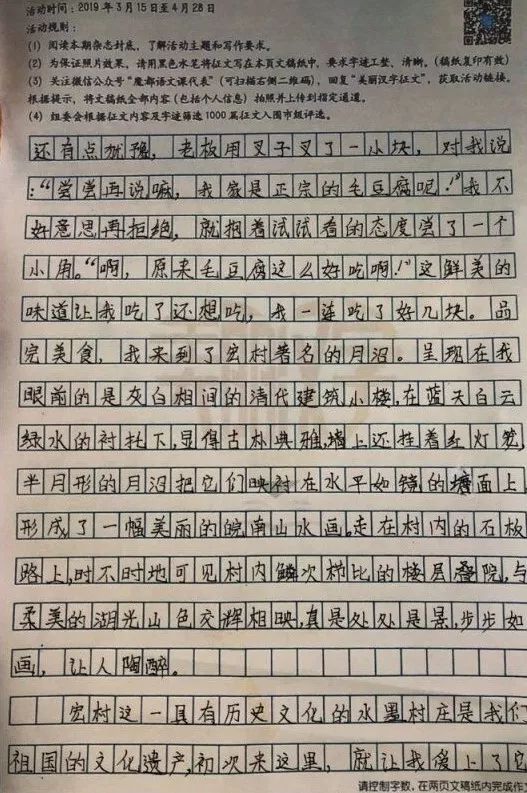 活动时间：2019年3月15日至4月28日
活动规则：
(1) 阅读本期杂志封底，了解活动主题和写作要求。
(2) 为保证照片效果，请用黑色水笔将征文写在本页文稿纸中，要求字迹工整、清晰。(稿纸复印有效)
(3) 关注微信公众号“魔都语文课代表”(可扫描右侧二维码)，回复“美丽汉字征文”，获取活动链接。
根据提示，将文稿纸全部内容(包括个人信息)拍照并上传到指定通道。
(4) 组委会根据征文内容及字迹筛选1000篇征文入围市级评选。
还有点犹豫，老板用叉子叉了一小块，对我说
：“尝尝再说嘛，我家是正宗的毛豆腐呢！”我不
好意思再拒绝，就抱着试试看的态度尝了一个
小角。“啊，原来毛豆腐这么好吃啊！”这鲜美的
味道让我吃了还想吃，我一连吃了好几块。品
完美食，我来到了宏村著名的月沼。呈现在我
眼前的是灰白相间的清代建筑小楼，在蓝天白云
绿水的衬托下，显得古朴典雅，墙上还挂着红灯笼，
半月形的月沼把它们映衬在水平如镜的塘面上，
形成了一幅美丽的皖南山水画。走在村内的石板
路上，时不时地可见村内鳞次栉比的楼层叠院，与
柔美的湖光山色交辉相映，真是处处是景，步步如
画，让人陶醉。
宏村这一具有历史文化的水墨村庄是我们
祖国的文化遗产，初次来这里，就让我爱上了它
请控制字数，在两页文稿纸内完成作